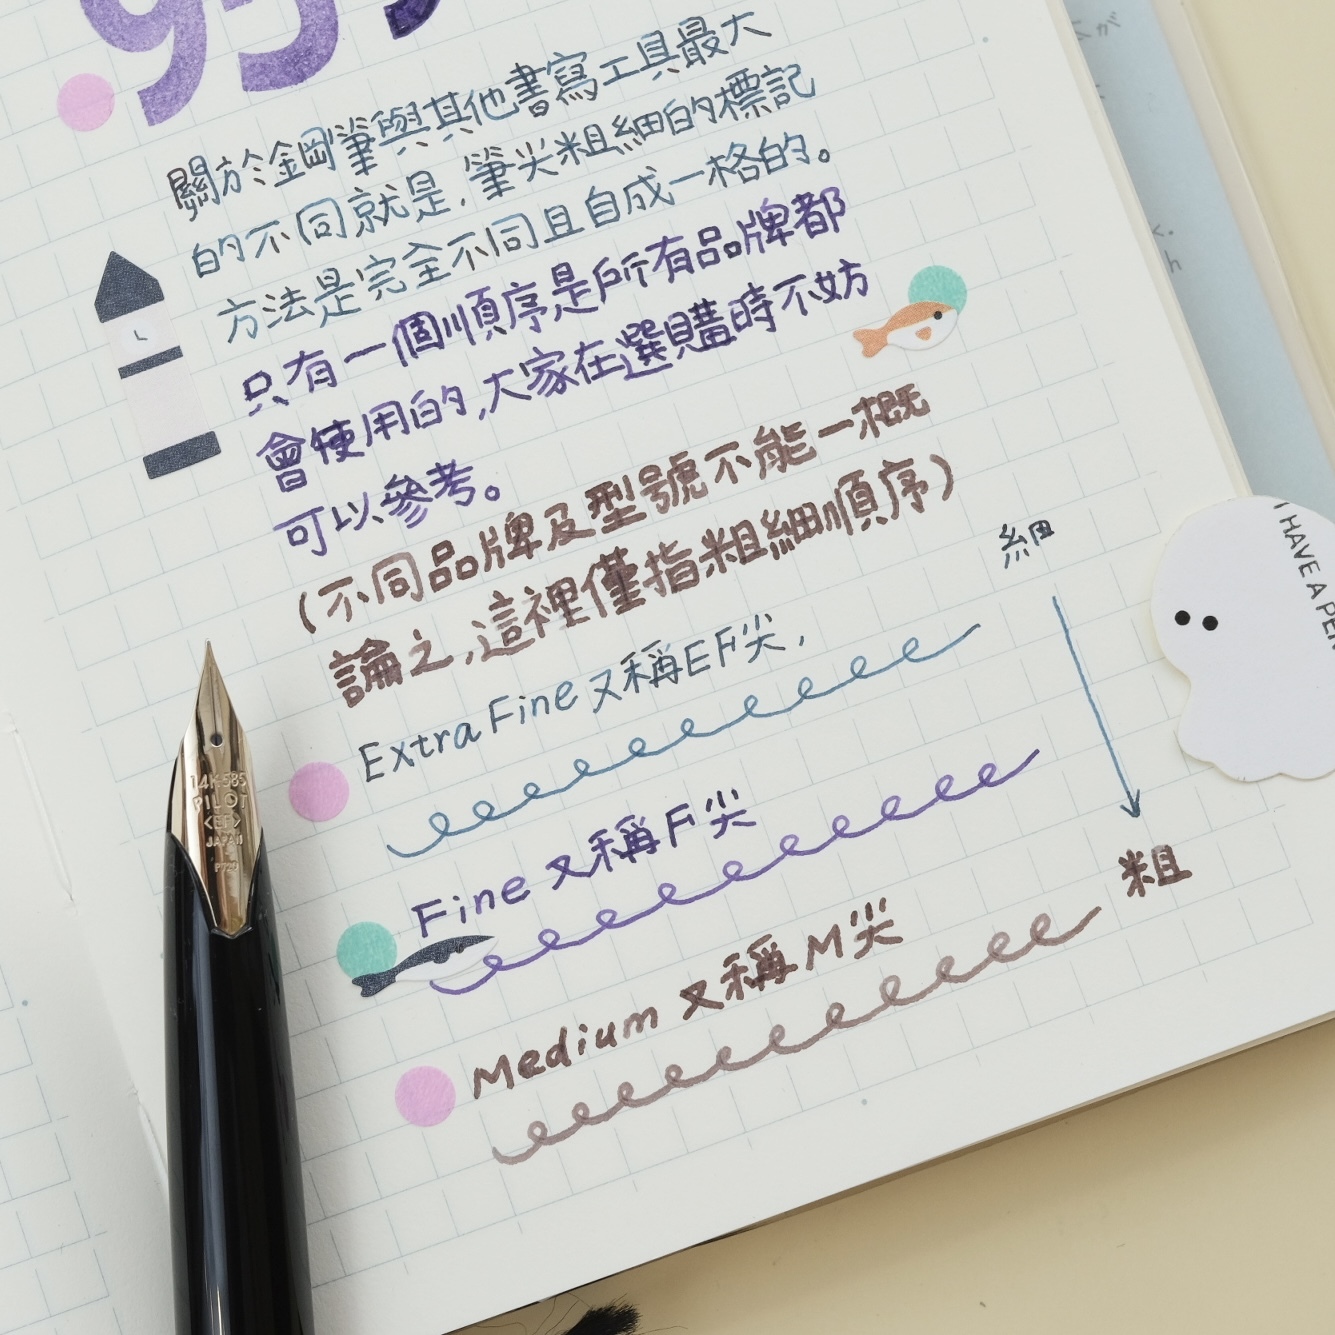 關於鋼筆與其他書寫工具最大
的不同就是,筆尖粗細的標記
方法是完全不同且自成一格的。
只有一個順序是所有品牌都
會使用的,大家在選購時不妨
可以參考。
(不同品牌及型號不能一概
論之,這裡僅指粗細順序)
細
Extra Fine 又稱EF尖,
Fine 又稱F尖
粗
Medium 又稱M尖
14K-585
PILOT
<EF>
JAPAN
I HAVE A PEN